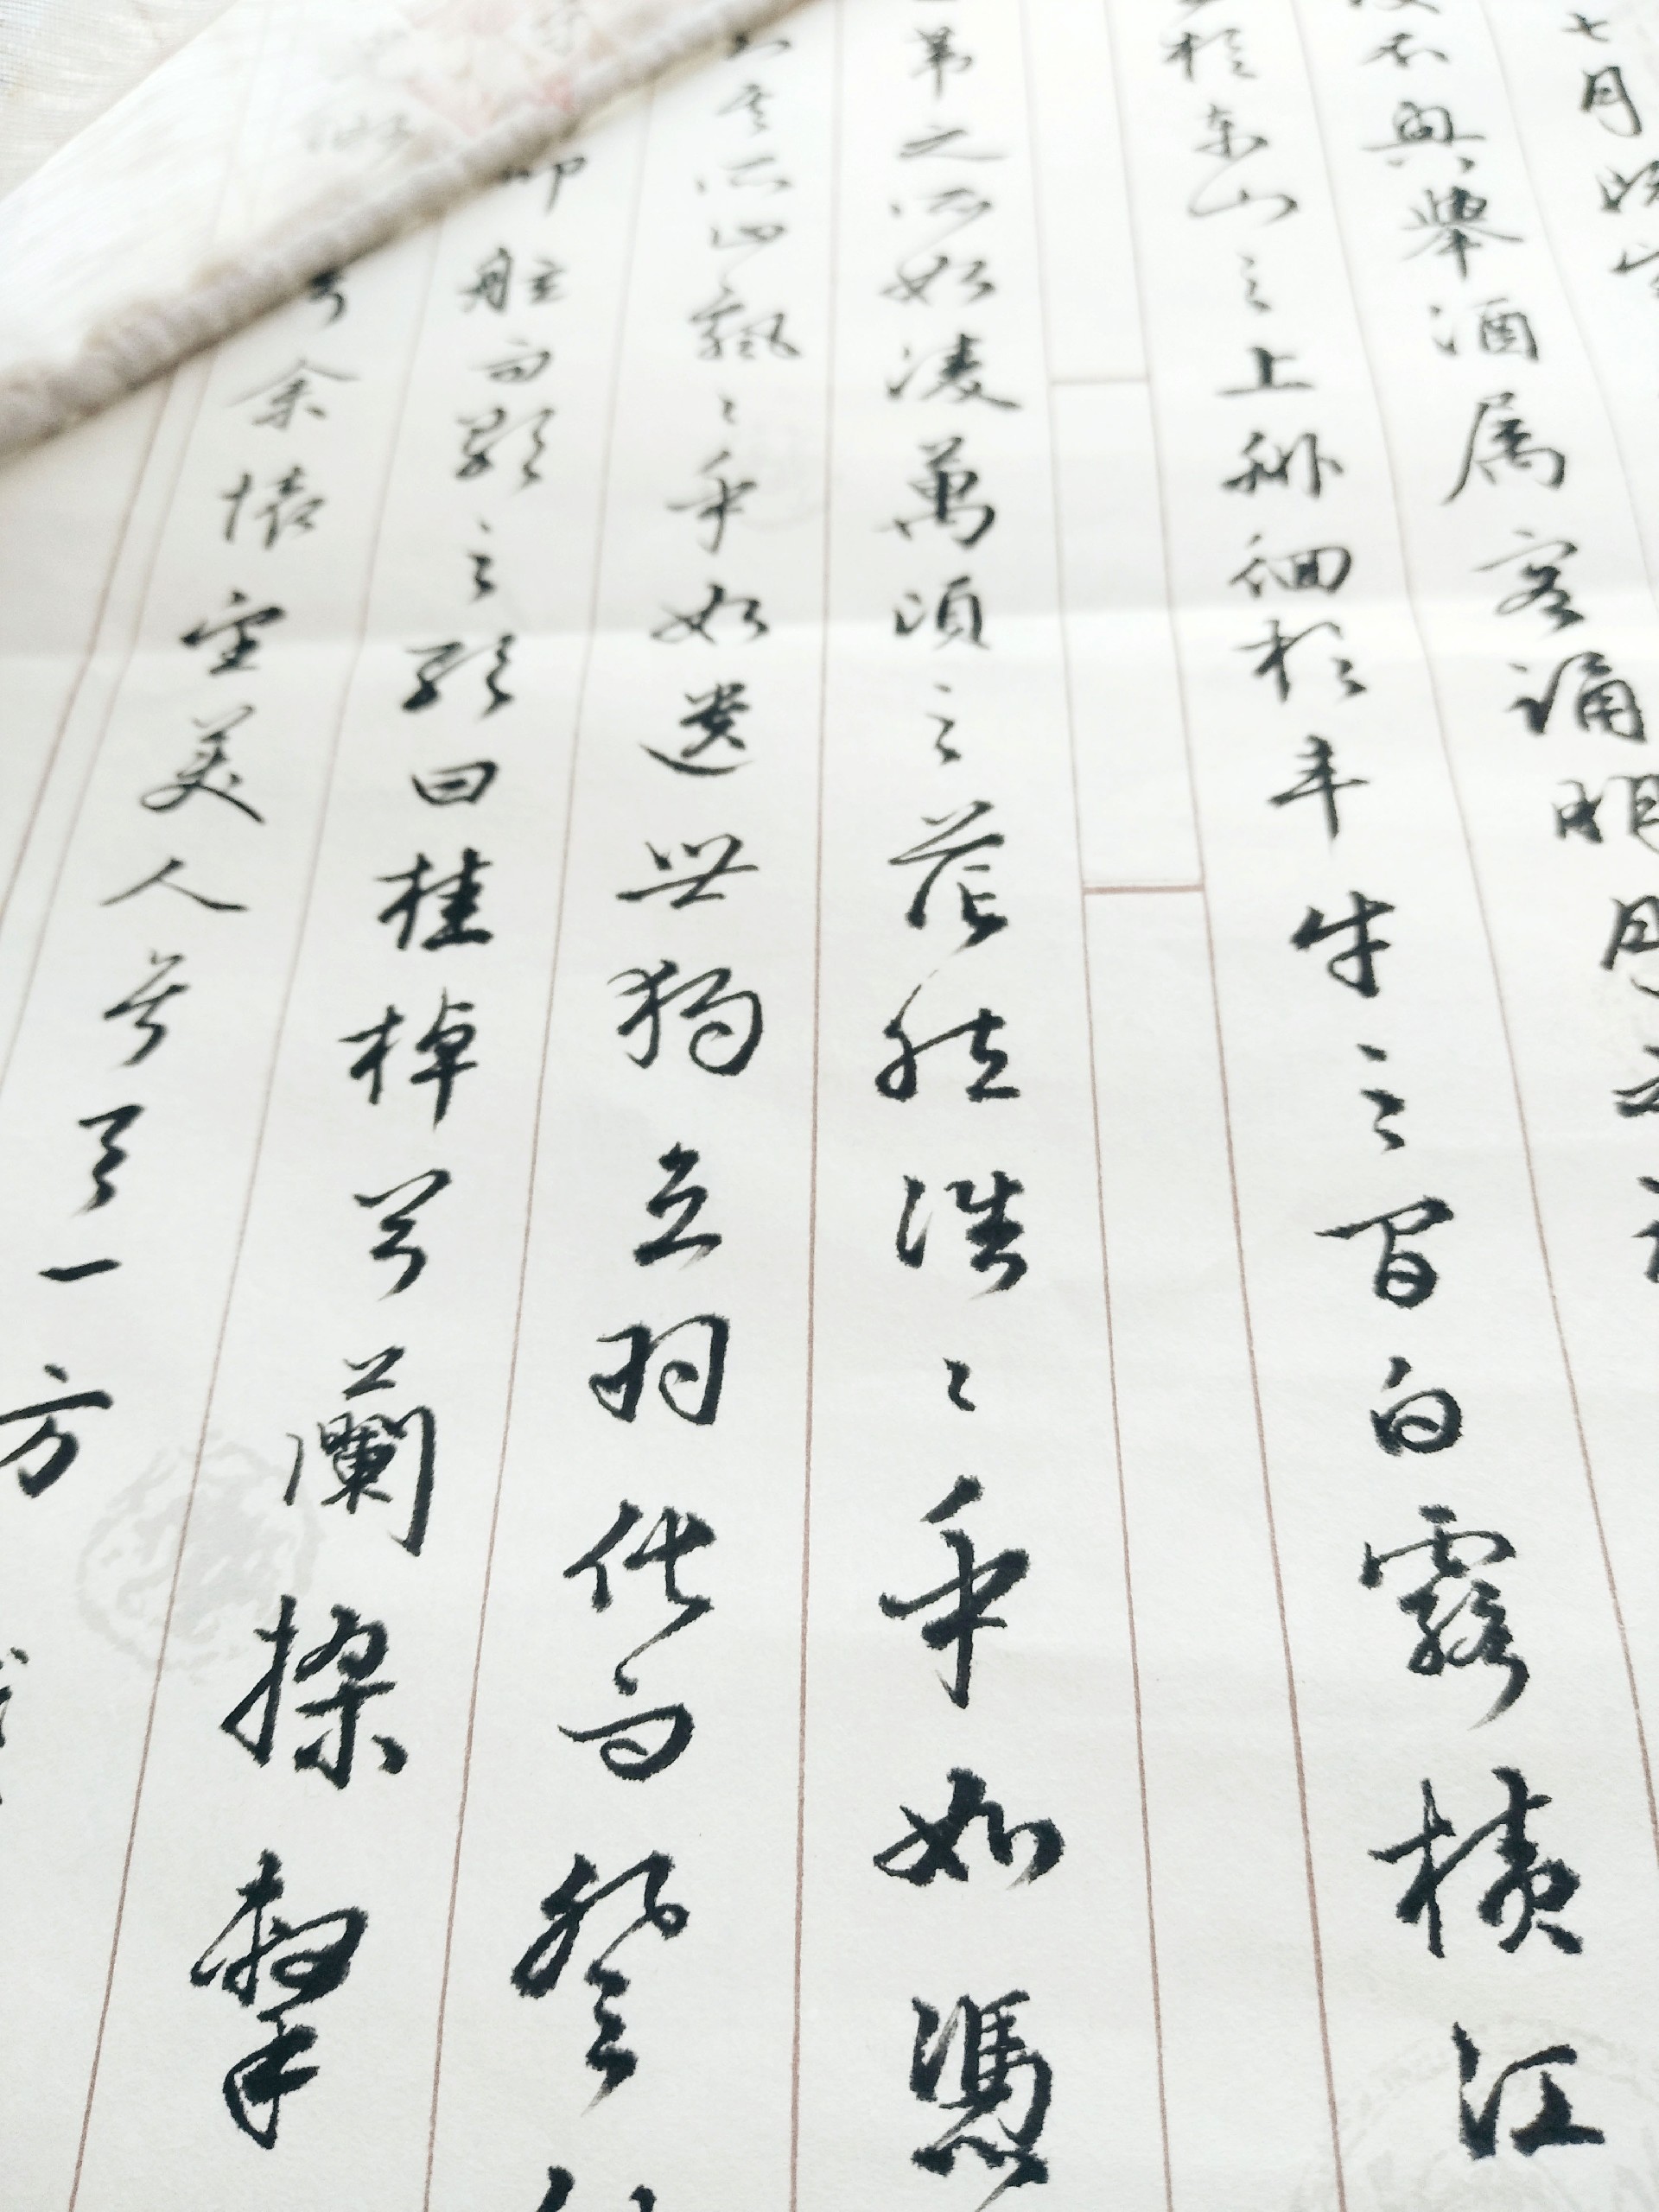 七月既
不興舉酒属客誦明月
於東山之上徘徊於斗牛之間白露横江
葦之所如凌萬頃之茫然浩〻乎如馮
其所止飄〻乎如遺世獨立羽化而登
叩舷而歌之歌曰桂棹兮蘭槳擊
兮余懷望美人兮天一方